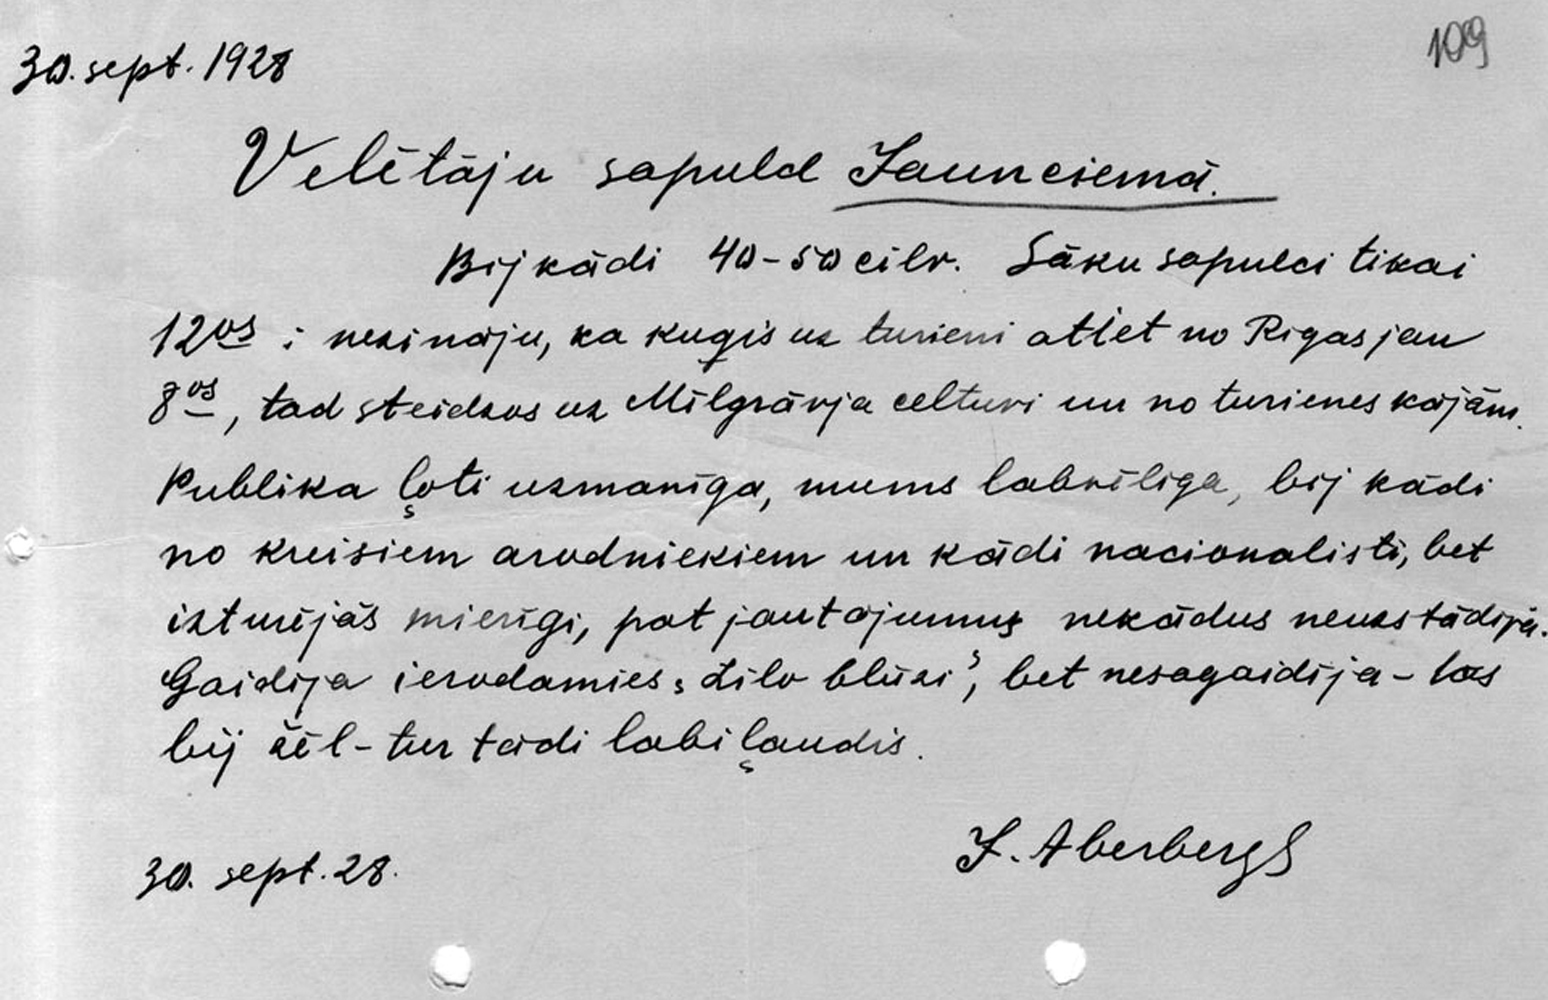 109
30. sept. 1928
Velētāju sapulcē Jaunciemā.
Bij kādi 40-50 cilv. Sāku sapulci tikai
12os ; nezināju, ka kuģis uz turieni atiet no Rīgas jau
8os, tad steidzos uz Mīlgrāvja celtuvi un no turienes kājām.
Publika ļoti uzmanīga, mums labvēlīga, bij kādi
no kreisiem arodniekiem un kādi nacionalisti, bet
izturējās mierīgi, pat jautājumus nekādus neuzstādīja.
Gaidīja ierodamies "Zilo blūzi", bet nesagaidīja - tas
bij žēl - tur tādi labi ļaudis.
30. sept. 28.
J. Aberbergs